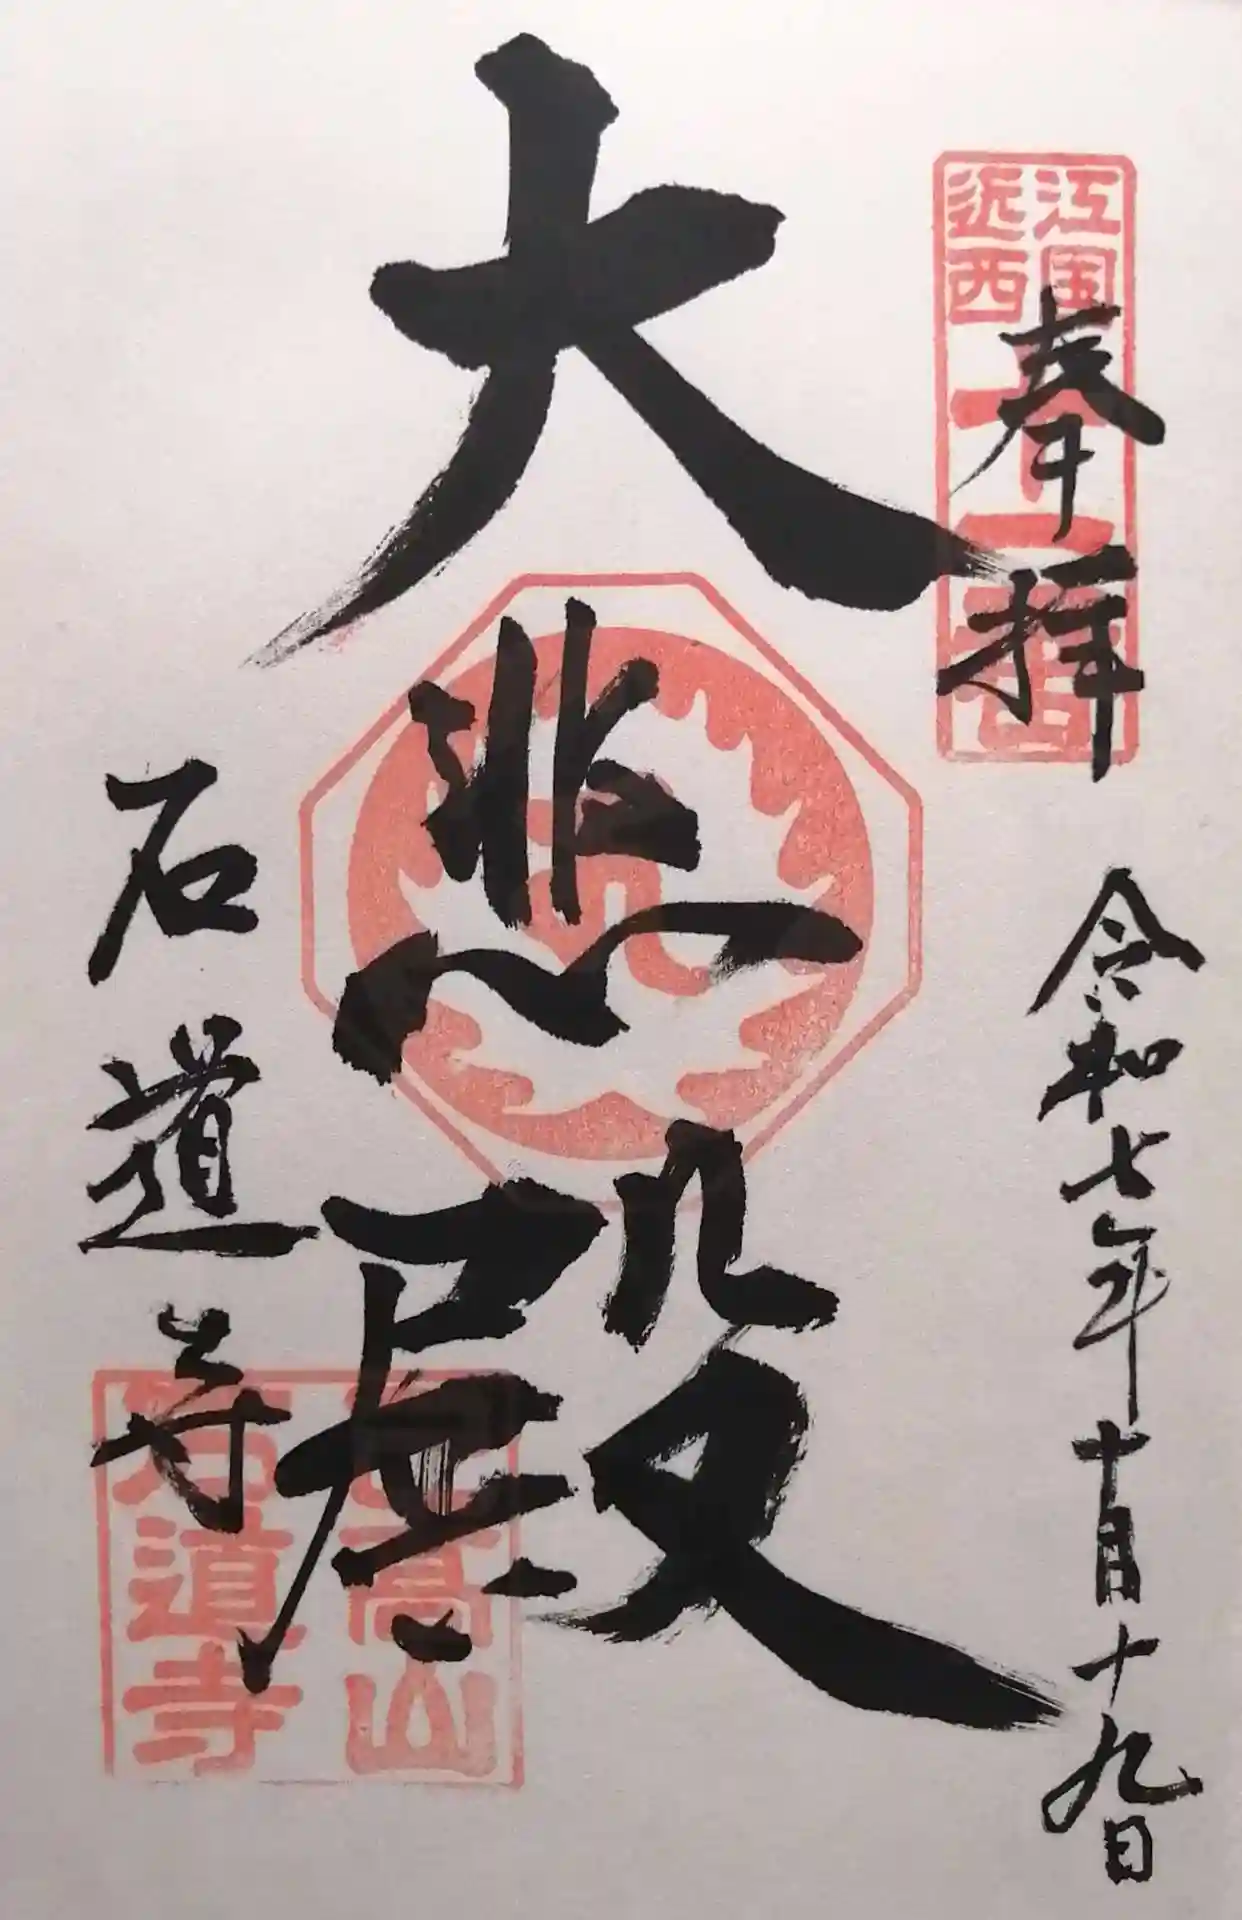 近江
西国
十一番
奉拝
令和七年十月十九日
大悲殿
石道寺
己高山
石道寺